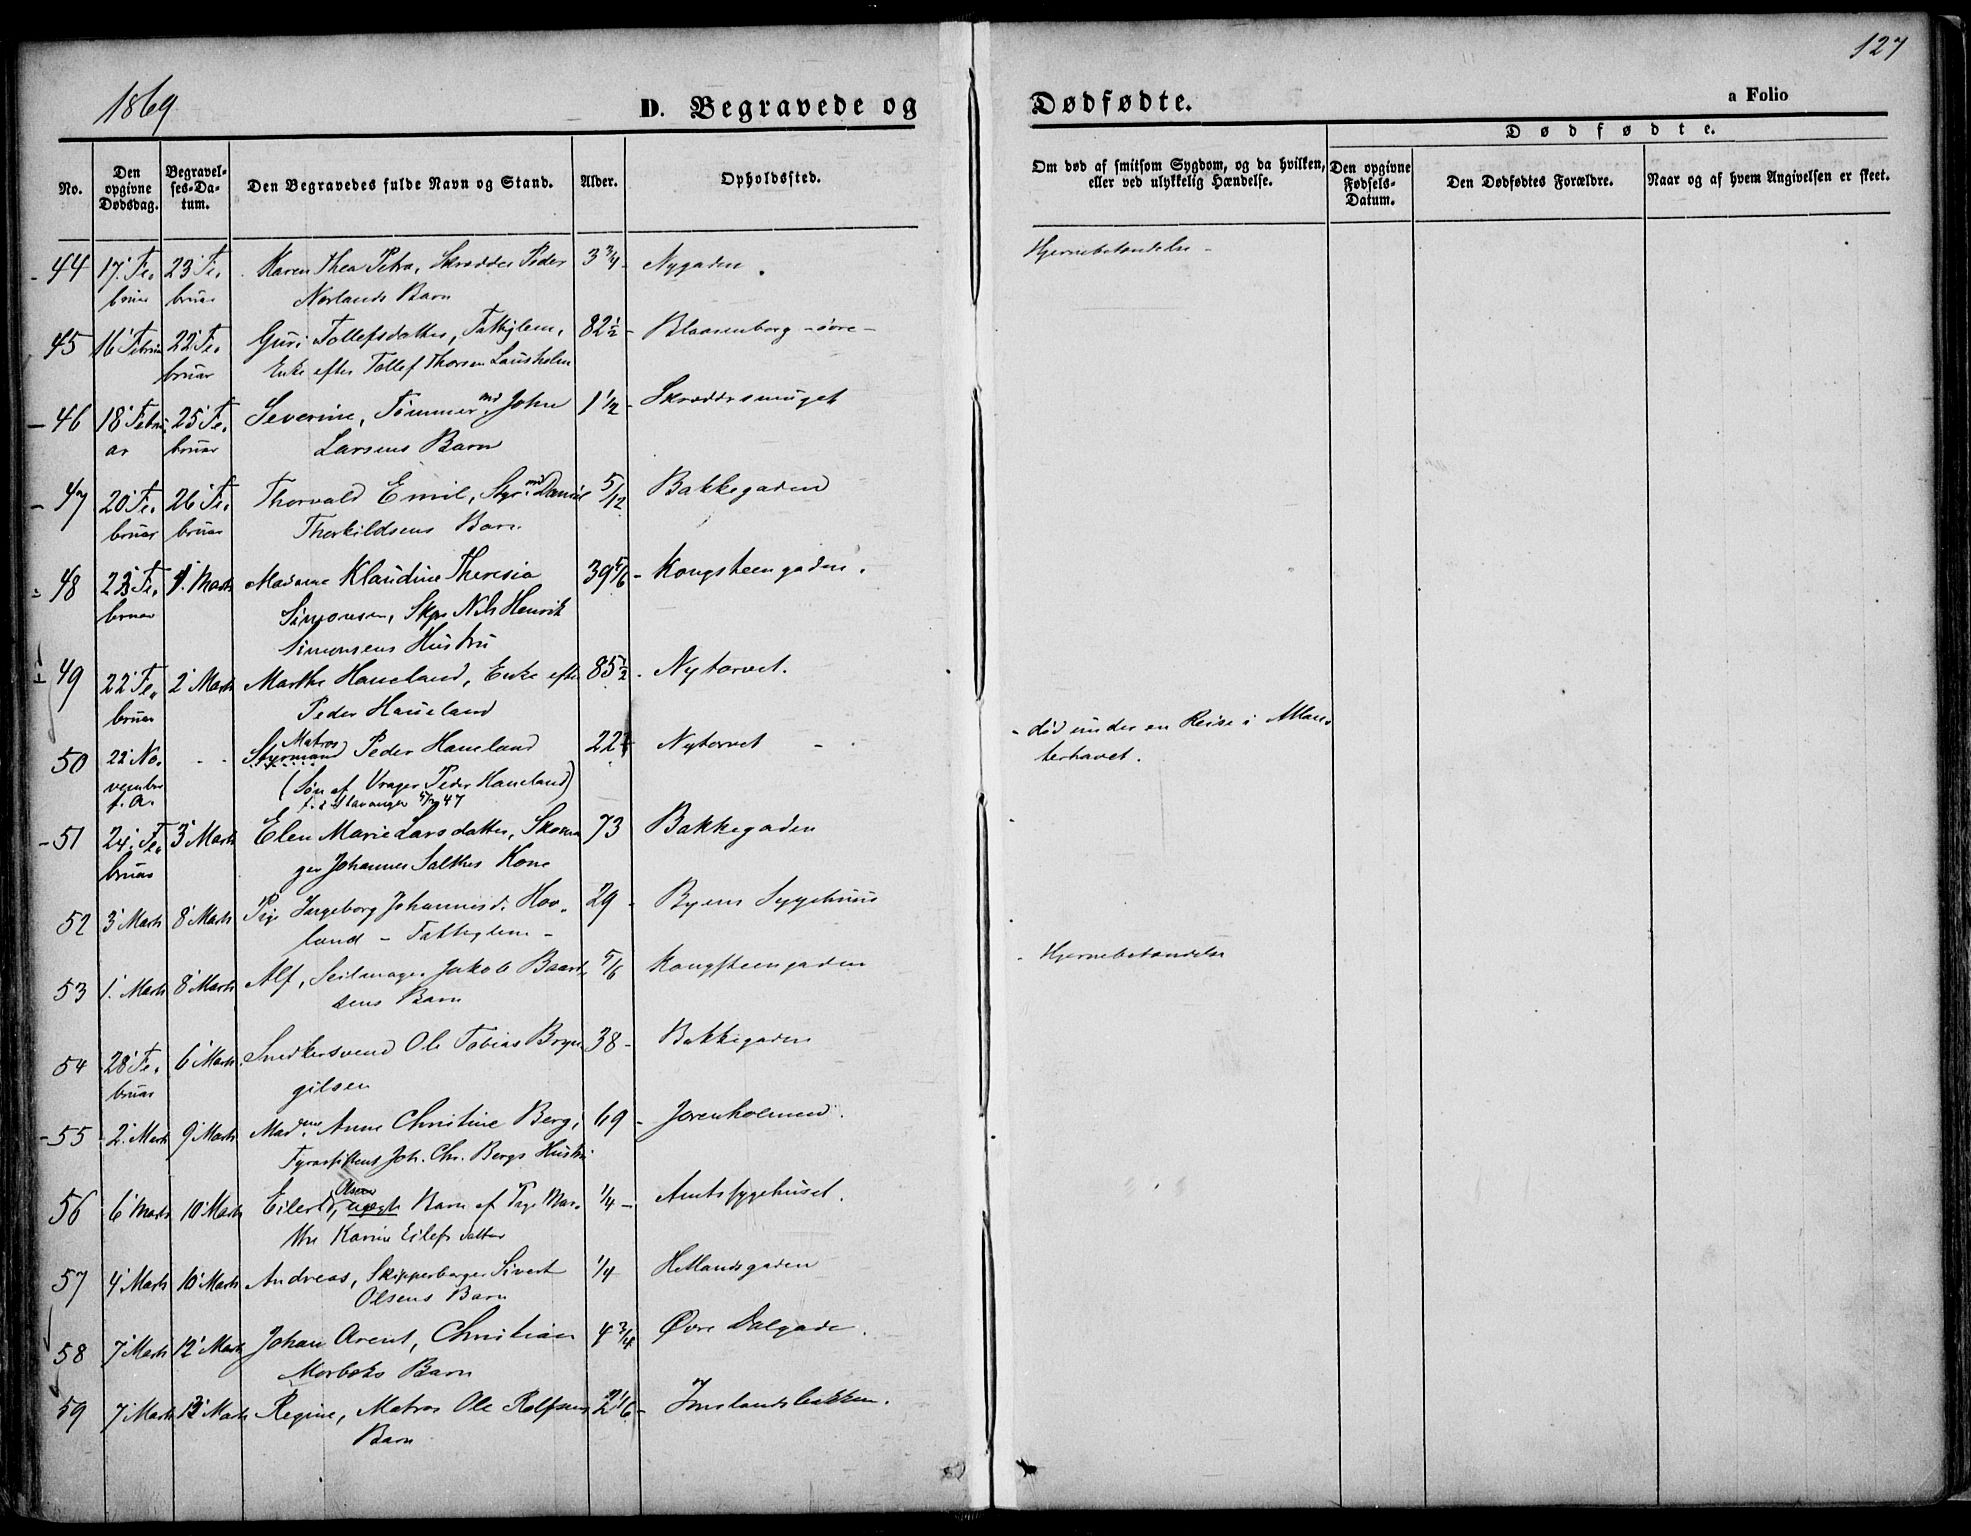 127
1869
D. Begravede og Dødfødte.
a Folio
No.
Den opgivne Dødsdag.
Begravelses-Datum.
Den Begravedes fulde Navn og Stand.
Alder.
Opholdssted.
Om død af smitsom Sygdom, og da hvilken, eller ved ulykkelig Hændelse.
Dødfødte.
Den opgivne Fødsels-Datum.
Den Dødfødtes Forældre.
Naar og af hvem Angivelsen er skeet.
44 17. Fe- 23 Fe- Karen Thea Petra, Skrædder Peder 3 3/4 Nygaden. Hjernebetændelse
bruar bruar Nørlands Barn
45 16 Februar 22 Fe- Guri Tollefsdatter, Fattiglem, 82 1/2 Blaasenborg - øvre -
bruar Enke efter Tollef Thorsen
46 18 Febru- 25 Fe- Severine, Tømmermd. John 1 1/2 Skræddersmuget
ar bruar Larsens Barn
47 20 Fe- 26 Fe- Thorvald Emil, Styrmd. Daniel 5/12 Bakkegaden
bruar bruar Thorkildsens Barn
48 23 Fe- 1. Marts Madame Klaudine Theresia 39 5/6 Kongsteengaden.
bruar Simonsen, Skpr Nils Henrik
Simonsens Hustru
49 22 Fe- 2 Marts Marthe Haueland, Enke efter 85 1/2 Nytorvet.
bruar Peder Haueland
50 22 No- Styrmand Matros Peder Haueland 22 Nytorvet død under en Reise i Atlan-
vember (Søn af Vrager Peder Haueland) terhavet.
f. A. f. i Stavanger 47
51 24. Fe- 3 Marts Elen Marie Larsdatter, Skoma- 73 Bakkegaden
bruar ger Johannes Salthes Kone
52 3 Marts 8 Marts Pige Ingeborg Johannesd. Hov- 29 Byens Sygehuus
land - Fattiglem -
53 1. Marts 8 Marts Alf, Seilmager Jakob Baard- 5/6 Kongsteengaden Hjernebetændelse
sens Barn
54 28 Fe- 6 Marts Snedkersvend Ole Tobias Bryn- 38 Bakkegaden
bruar gilsen
55 2. Marts 9 Marts Madme. Anne Christine Berg, 69 Jorenholmen.
Fyrassistent Joh. Chr. Bergs Hustru
56 6 Marts 10 Marts Eilert Olsen, uægte Barn af Pige Mar- 1/4 Amtssygehuset.
the Karine Eilefsdatter
57 4 Marts 10 Marts Andreas, Skipperborger Sivert 1/4 Hetlandsgaden
Olsens Barn
58 7 Marts 12 Marts Johan Arent, Christian 4 3/4 Øvre Dalgade.
Morbeks Barn
59 7 Marts 13 Marts Regine, Matros Ole Rolfsens 2 1/6 Imslandsbakken.
Barn